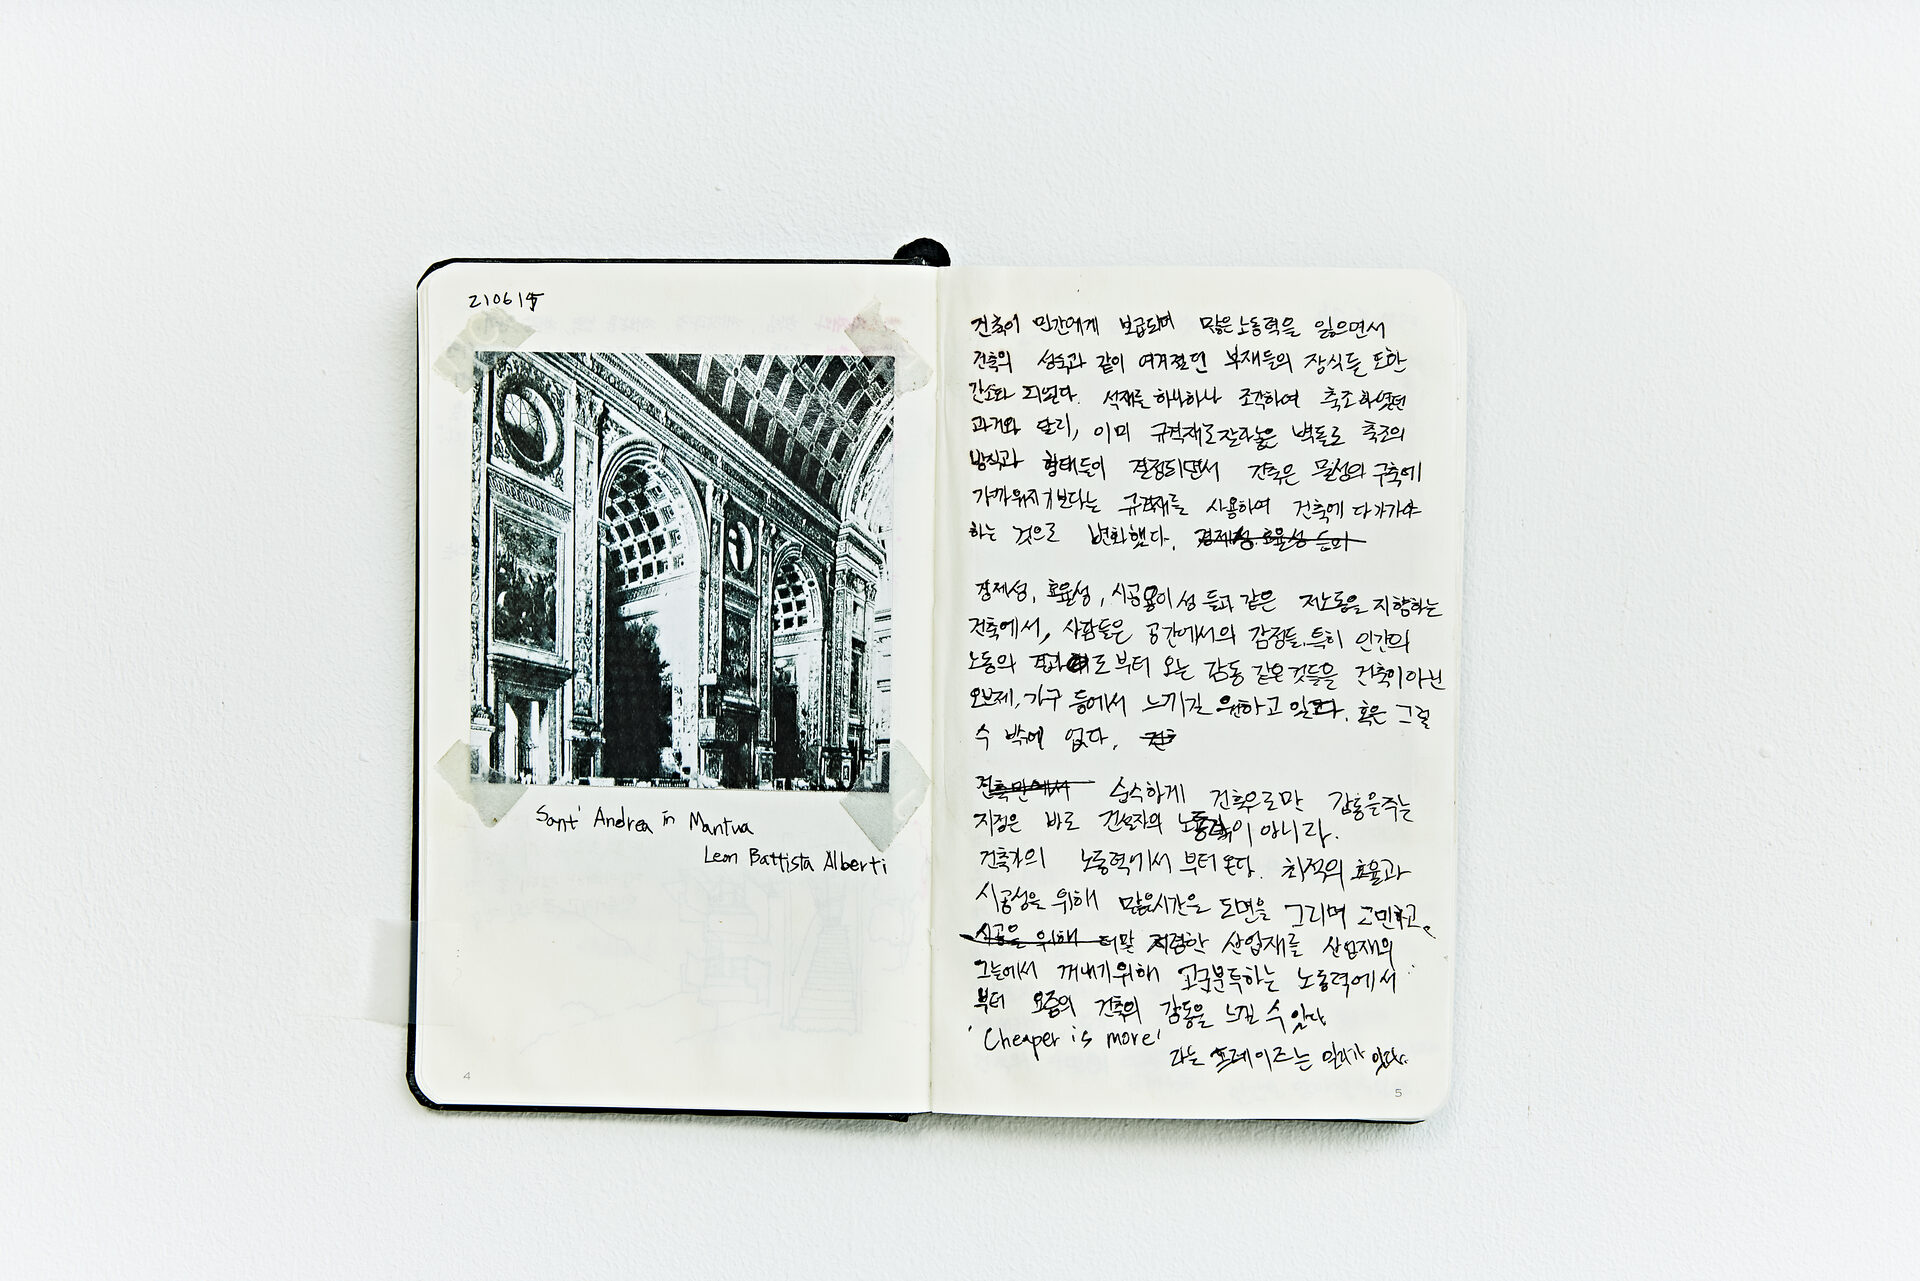 210615
Sant' Andrea in Mantua
Leon Battista Alberti
4
건축이 민간에게 보급되며 많은 노동력을 잃으면서
건축의 성숙과 같이 여겨졌던 부재들의 장식들 또한
간소화 되었다. 석재를 하나하나 조각하여 축조하였던
과거와 달리, 이미 규격재로 잘라놓은 벽돌로 축조의
방식과 형태들이 결정되면서 건축은 물성의 구축에
가까워지기보다는 규격재를 사용하여 건축에 다가가야
하는 것으로 변화했다. 경제성 효율성 등의
경제성, 효율성, 시공용이성 등과 같은 저노동을 지향하는
건축에서, 사람들은 공간에서의 감정들, 특히 인간의
노동의 결과로부터 오는 감동 같은 것들을 건축이 아닌
오브제, 가구 등에서 느끼길 원하고 있다. 혹은 그럴
수 밖에 없다. 건축
건축만에서 순수하게 건축으로만 감동을 주는
지점은 바로 건설자의 노동력이 아니다.
건축가의 노동력에서 부터 온다. 최적의 효율과
시공성을 위해 많은 시간을 도면을 그리며 고민하고,
시공을 위해 저렴한 산업재를 산업재의
그늘에서 꺼내기 위해 고군분투하는 노동력에서
부터 요즘의 건축의 감동을 느낄 수 있다
'Cheaper is more'
라는 프레이즈는 일리가 있다.
5